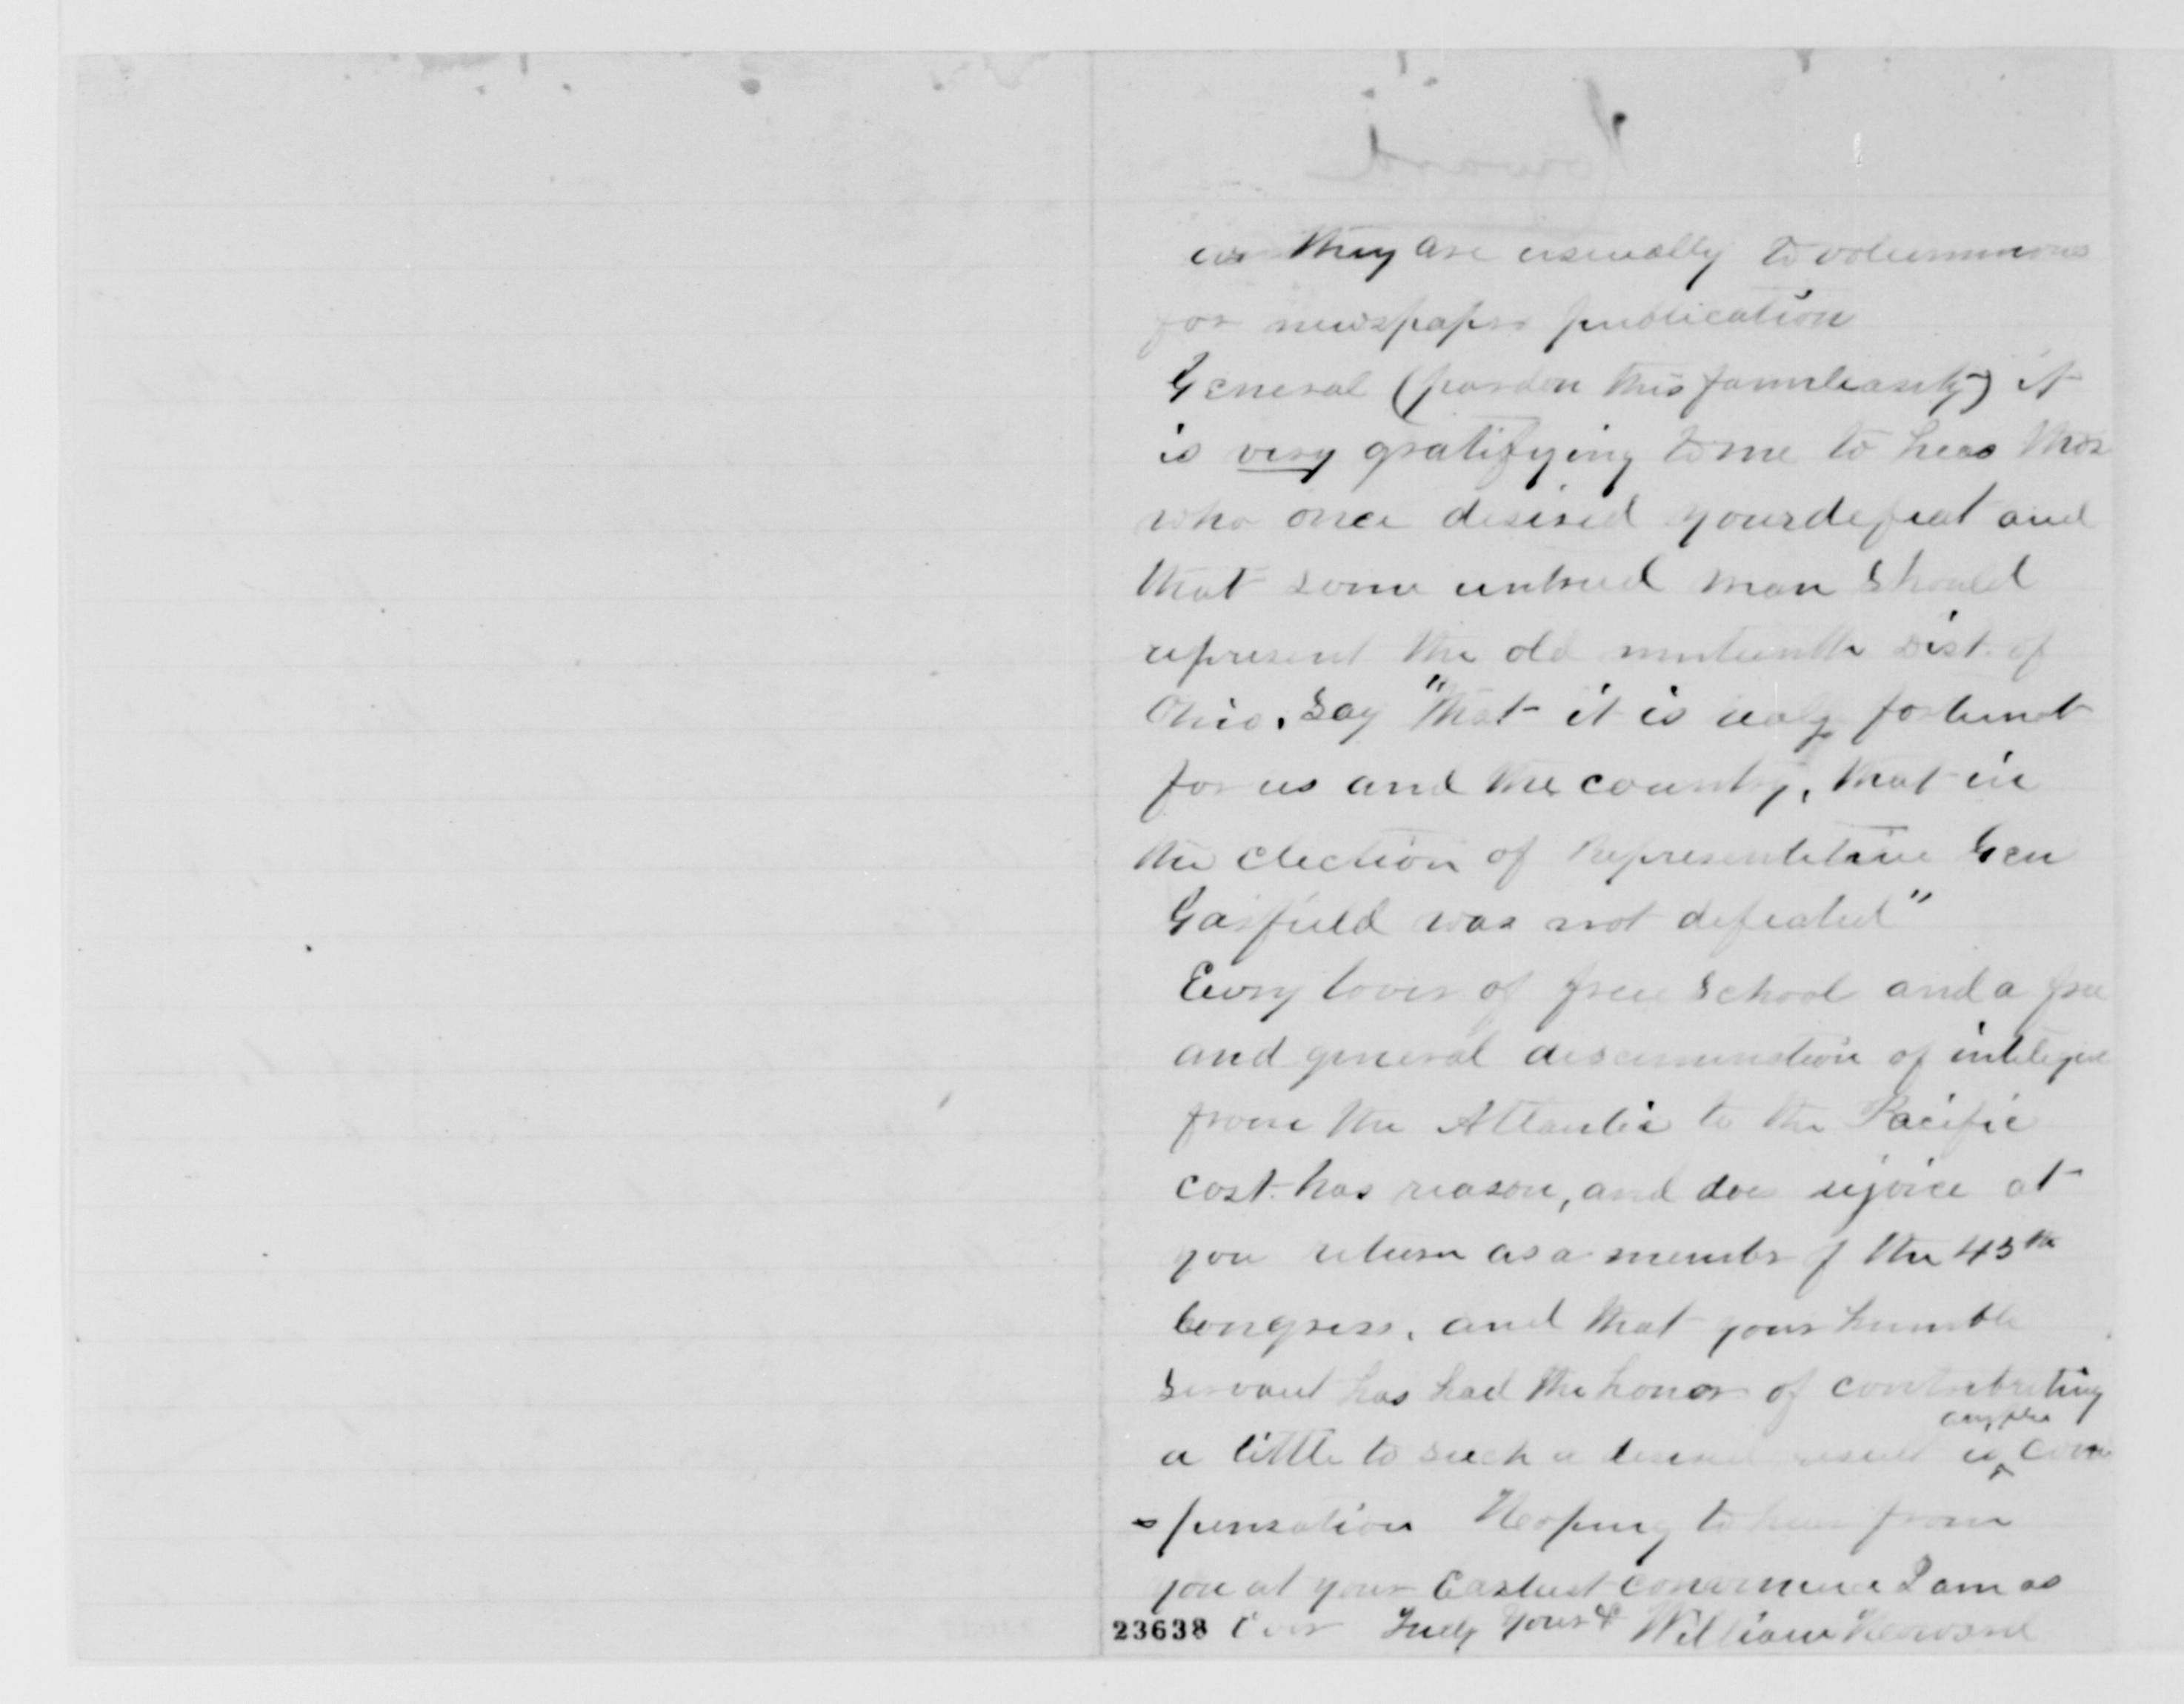 as they are usually to voluminous
for newspaper publication
General (pardon this familiarity) it
is very gratifying to me to hear thos
who once desired your defeat and
that some untried man should
represent the old ninteenth Dist. of
Ohio. Say "that it is realy fortunat
for us and the country, that in
the election of Representitive Gen
Garfield was not defeated"
Every lover of free School and a free
and general of
from the Atlantic to the Pacific
cost has reason, and doe rejoice at
you return as a member of the 43th
Congress. and that your humble
Servant has had the honor of contributing
a little to such a desired result is ample com
-pensation Hoping to hear from
you at your Earliest convinience I am as
23638 Ever Truly Yours & William Howard